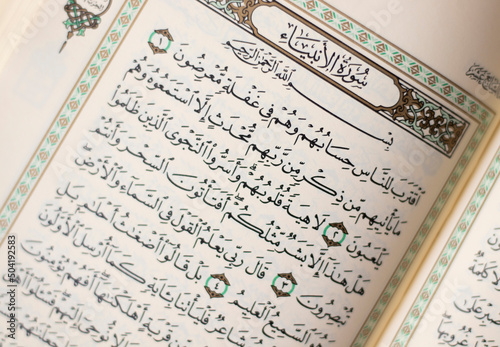 سُورَةُ الْأَنْبِيَاءِ
بِسْمِ اللَّهِ الرَّحْمَٰنِ الرَّحِيمِ
ٱقْتَرَبَ لِلنَّاسِ حِسَابُهُمْ وَهُمْ فِى غَفْلَةٍ مُّعْرِضُونَ ١
مَا يَأْتِيهِم مِّن ذِكْرٍ مِّن رَّبِّهِم مُّحْدَثٍ إِلَّا ٱسْتَمَعُوهُ وَهُمْ
يَلْعَبُونَ ٢ لَاهِيَةً قُلُوبُهُمْ وَأَسَرُّوا۟ ٱلنَّجْوَى ٱلَّذِينَ ظَلَمُوا۟
هَلْ هَٰذَآ إِلَّا بَشَرٌ مِّثْلُكُمْ أَفَتَأْتُونَ ٱلسِّحْرَ وَأَنتُمْ
تُبْصِرُونَ ٣ قَالَ رَبِّى يَعْلَمُ ٱلْقَوْلَ فِى ٱلسَّمَآءِ وَٱلْأَرْضِ
ٱلسَّمِيعُ ٱلْعَلِيمُ ٤ بَلْ قَالُوٓا۟ أَضْغَٰثُ أَحْلَٰمٍ بَلِ
شَاعِرٌ فَلْيَأْتِنَا بِـَٔايَةٍ كَمَآ أُرْسِلَ ٱلْأَوَّلُونَ
قَرْيَةٍ أَهْلَكْنَٰهَآ أَفَهُمْ يُؤْمِنُونَ